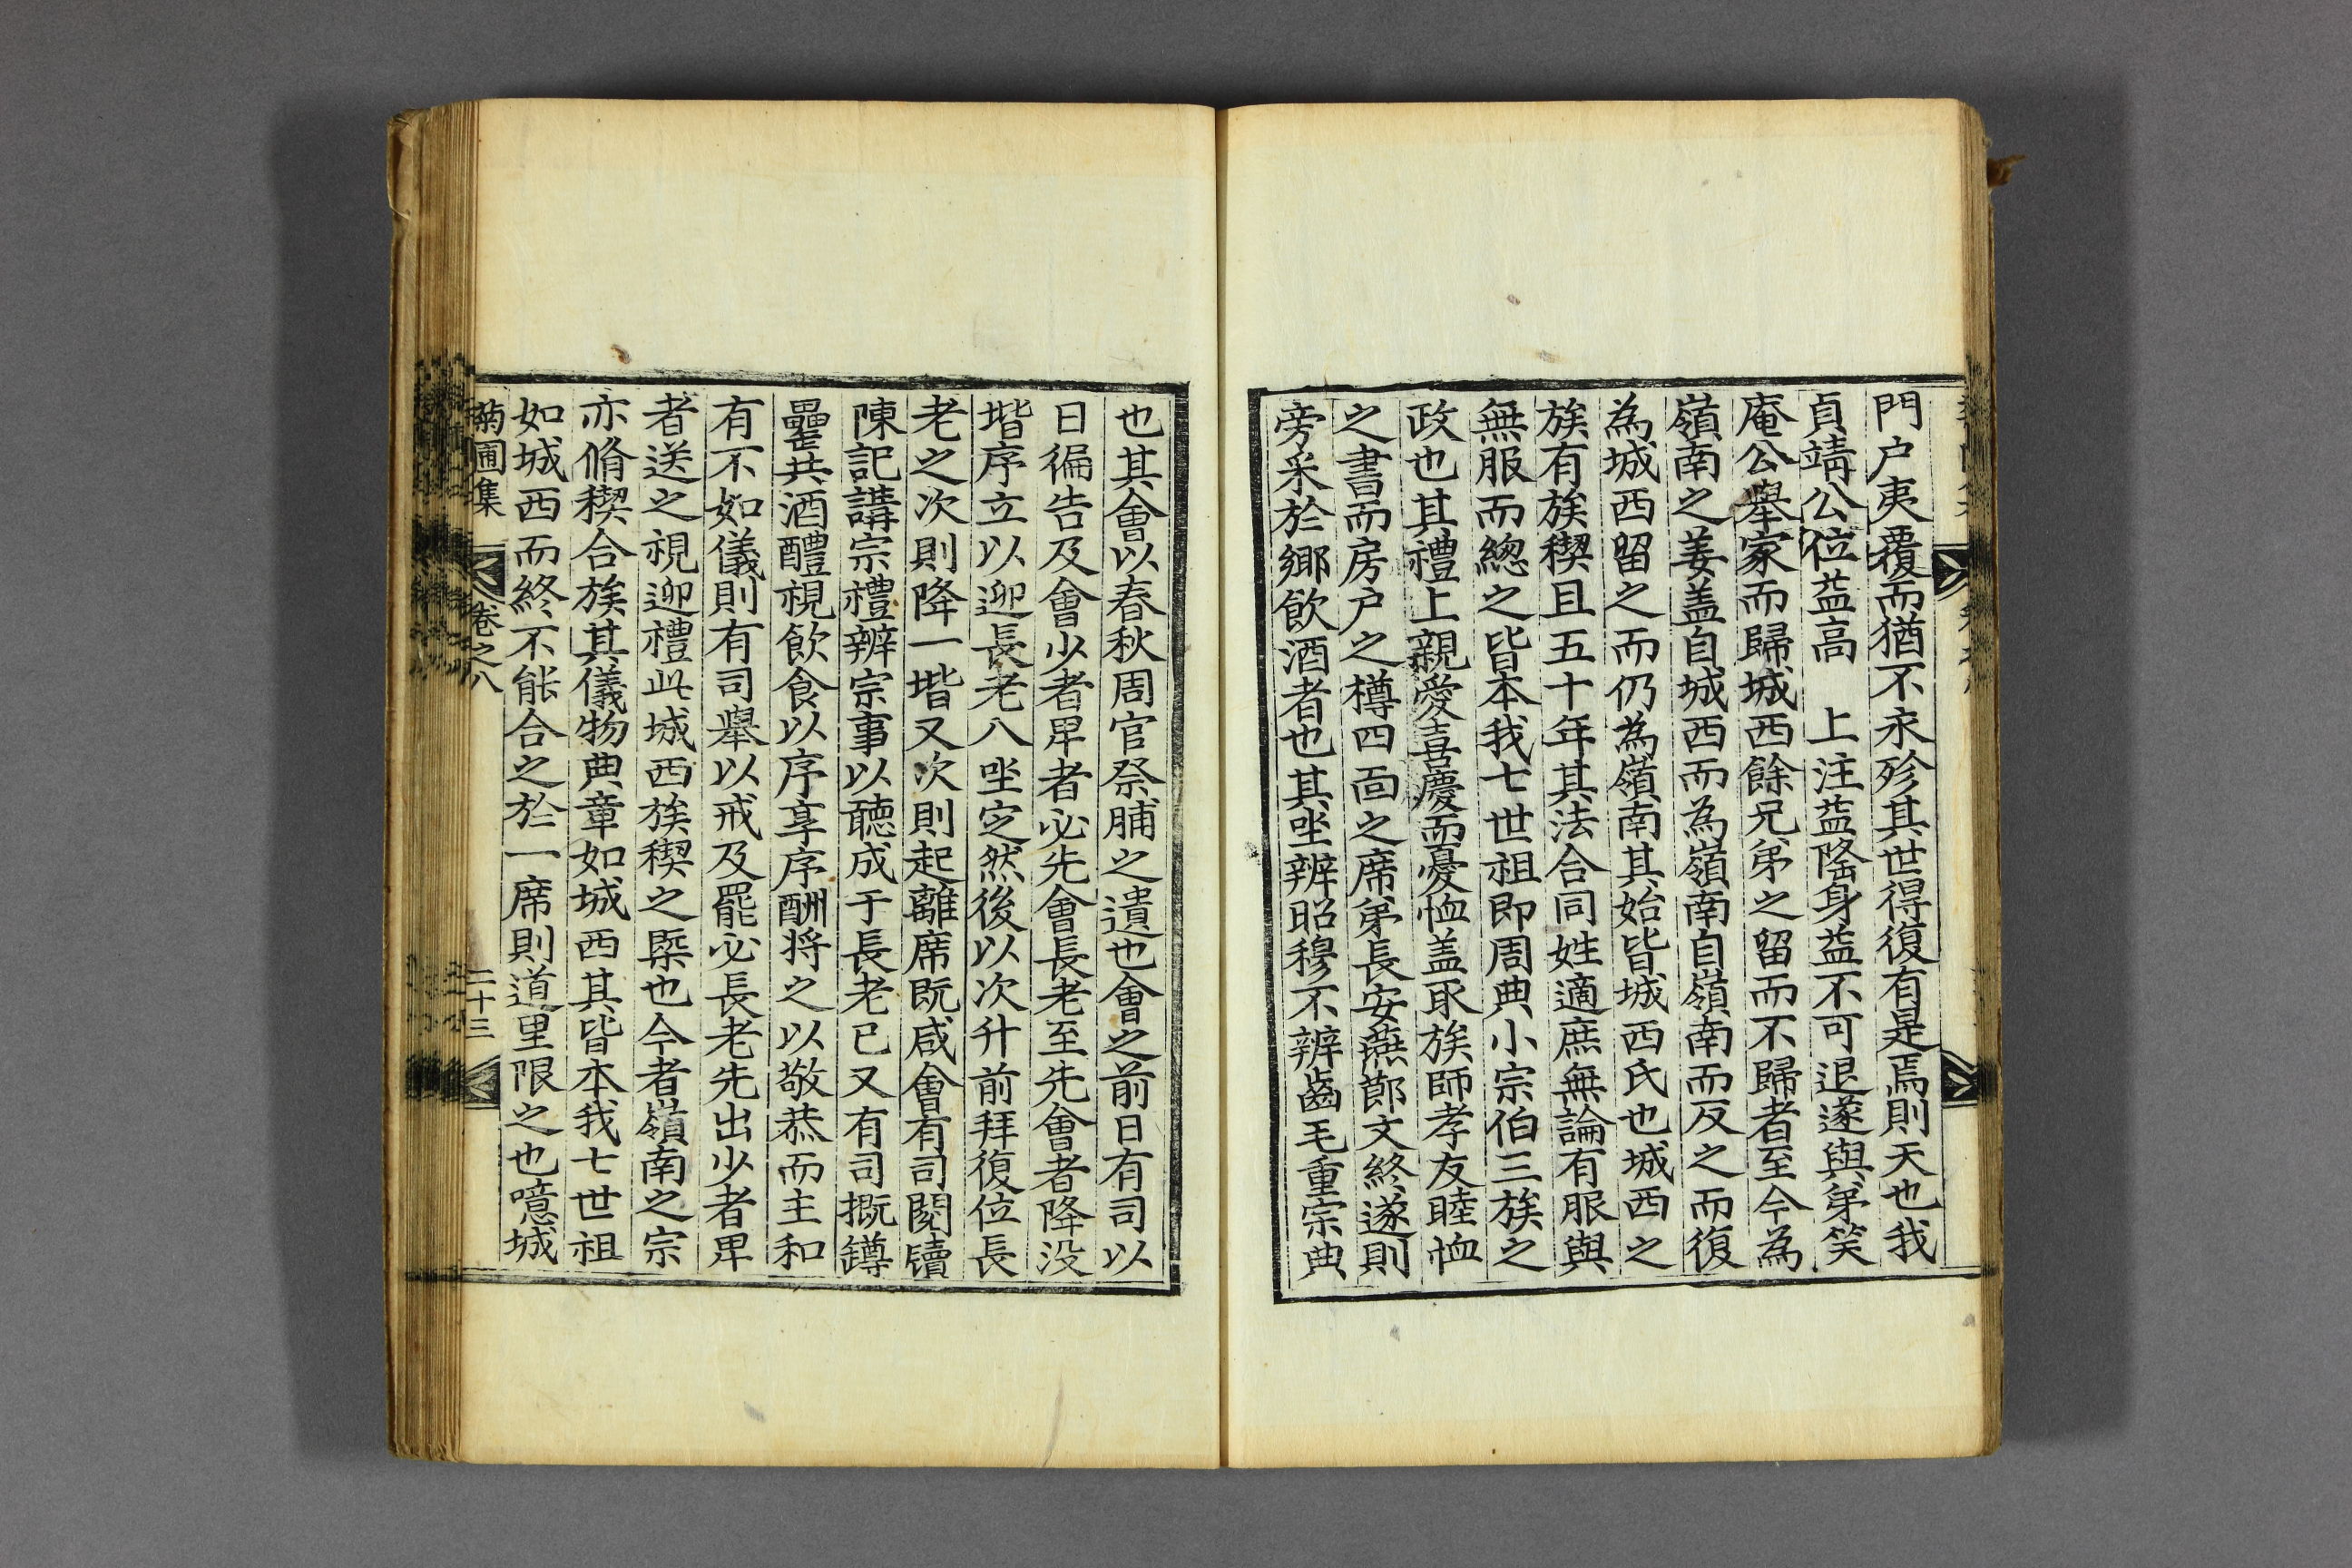 門户夷覆而猶不永殄其世得復有是焉則天也我
貞靖公位益高　上注益隆身益不可退遂與弟笑
庵公舉家而歸城西餘兄弟之留而不歸者至今為
嶺南之姜盖自城西而為嶺南自嶺南而反之而復
為城西留之而仍為嶺南其始皆城西氏也城西之
族有族稧且五十年其法合同姓適庶無論有服與
無服而緫之皆本我七世祖即周典小宗伯三族之
政也其禮上親愛喜慶而憂恤盖取族師孝友睦恤
之書而房户之樽四面之席弟長安燕節文終遂則
旁采於鄉飲酒者也其坐辨昭穆不辨齒毛重宗典
也其會以春秋周官祭脯之遺也會之前日有司以
日徧告及會少者卑者必先會長老至先會者降没
堦序立以迎長老入坐定然後以次升前拜復位長
老之次則降一堦又次則起離席既咸會有司閱牘
陳記講宗禮辨宗事以聽成于長老已又有司概罇
罍共酒醴視飲食以序享序酬将之以敬恭而主和
有不如儀則有司舉以戒及罷必長老先出少者卑
者送之視迎禮此城西族稧之槩也今者嶺南之宗
亦脩稧合族其儀物典章如城西其皆本我七世祖
如城西而終不能合之於一席則道里限之也噫城
菊圃集　卷之八　二十三